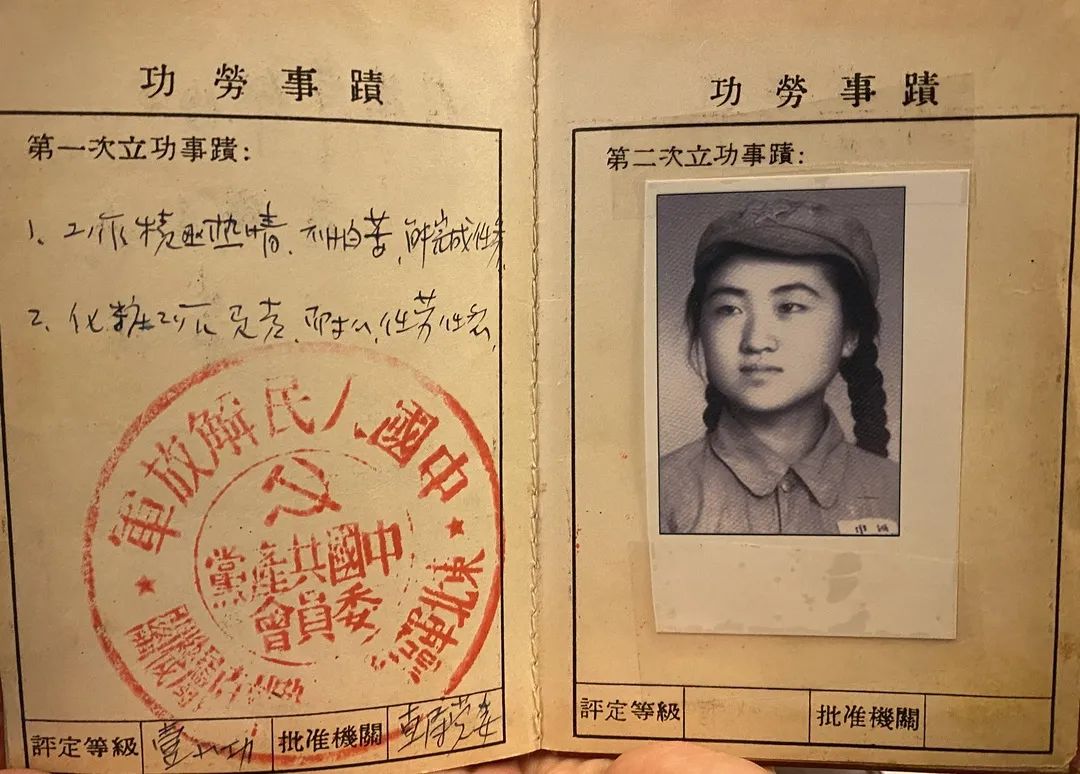 功勞事蹟
第一次立功事蹟:
1、工作積极热情、不怕苦,能完成任务,
2、化粧工作负责、耐心,任劳任怨,
中國人民解放軍
東北軍區
中國共產黨
委員會
評定等級 壹小功 批准機關 直属党委
功勞事蹟
第二次立功事蹟:
中國
評定等級 批准機關